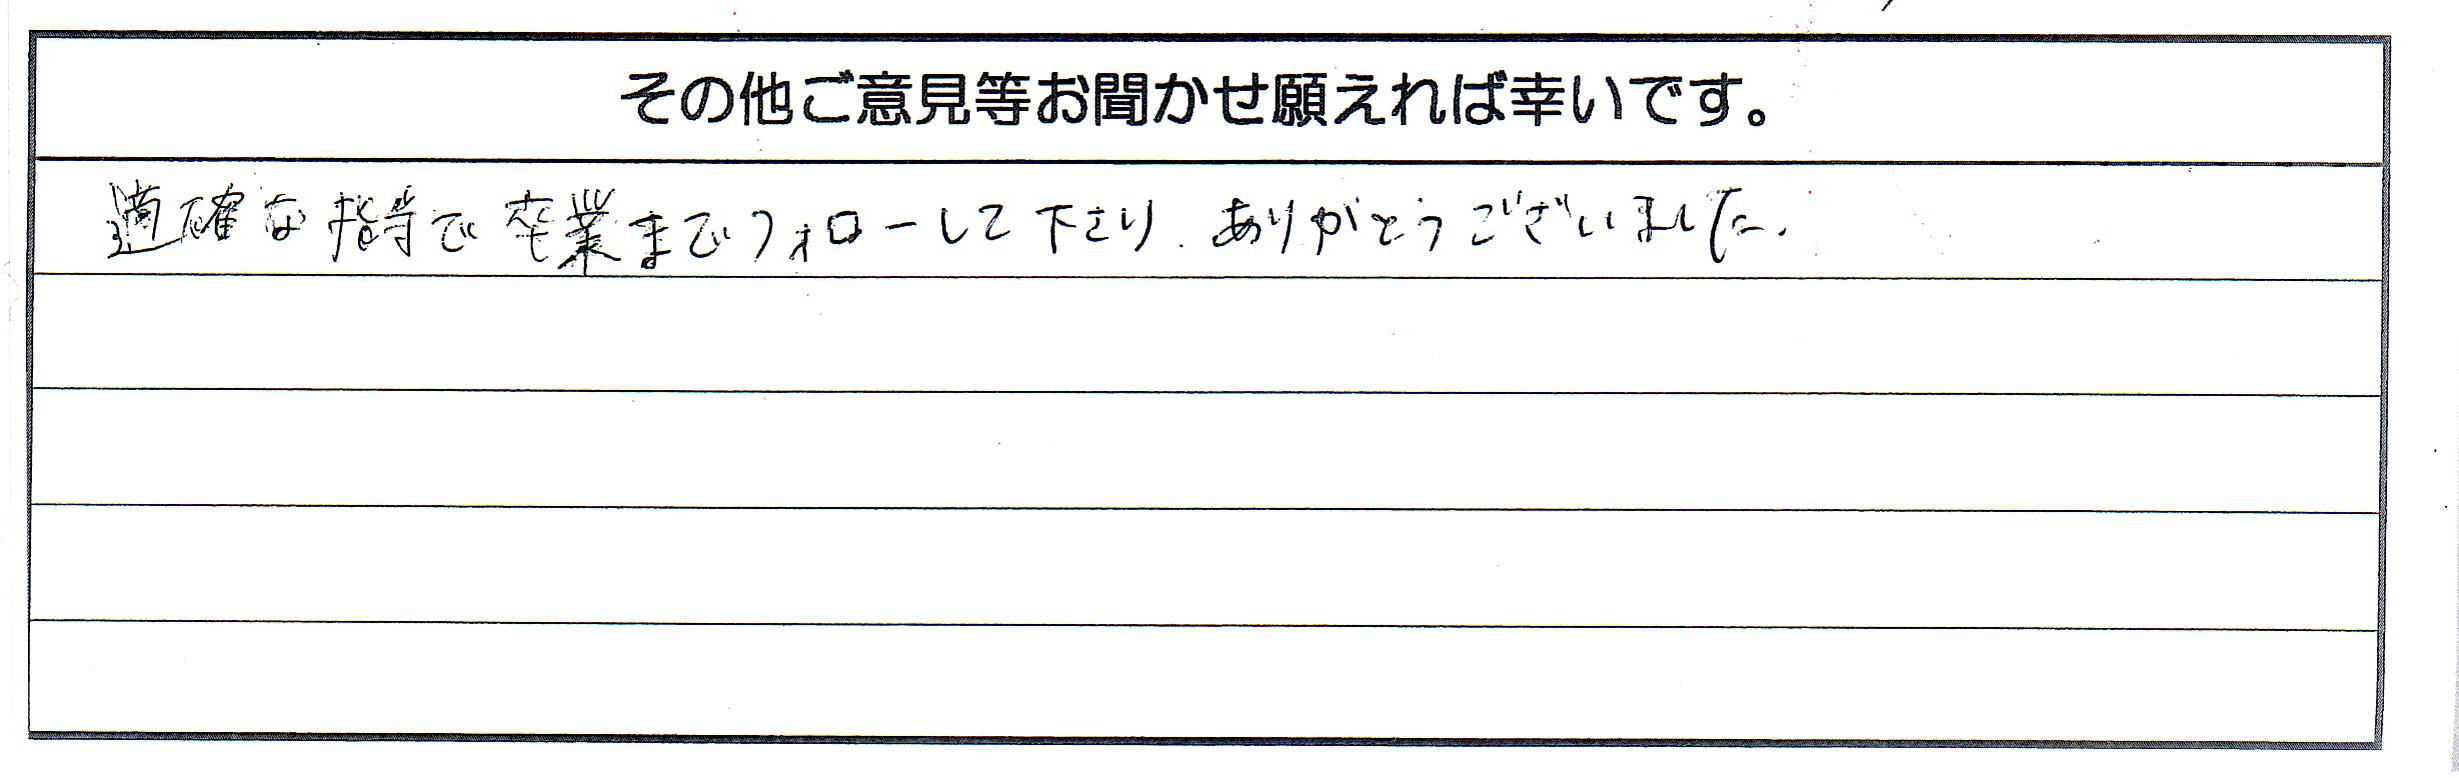 その他ご意見等お聞かせ願えれば幸いです。
適確な指導で卒業までフォローして下さり、ありがとうございました。